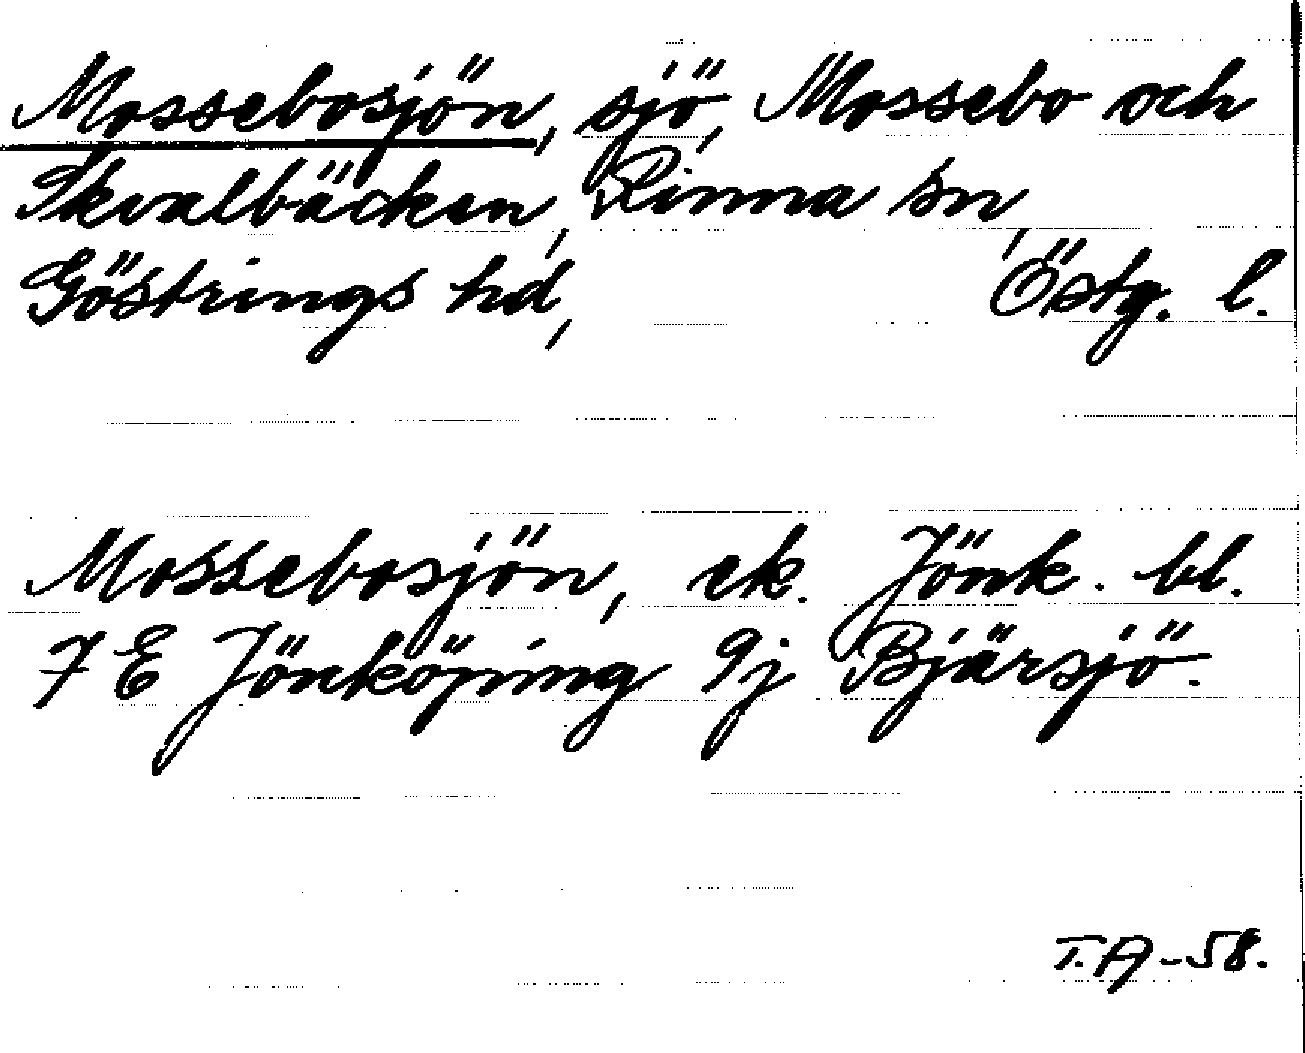 Mossebosjön, sjö, Mossebo och
Skvalbäcken, Rinna sn,
Göstrings hd, Östg. l.
Mossebosjön, ek. Jönk. bl.
7 E Jönköping 9j Bjärsjö.
T.A-58.